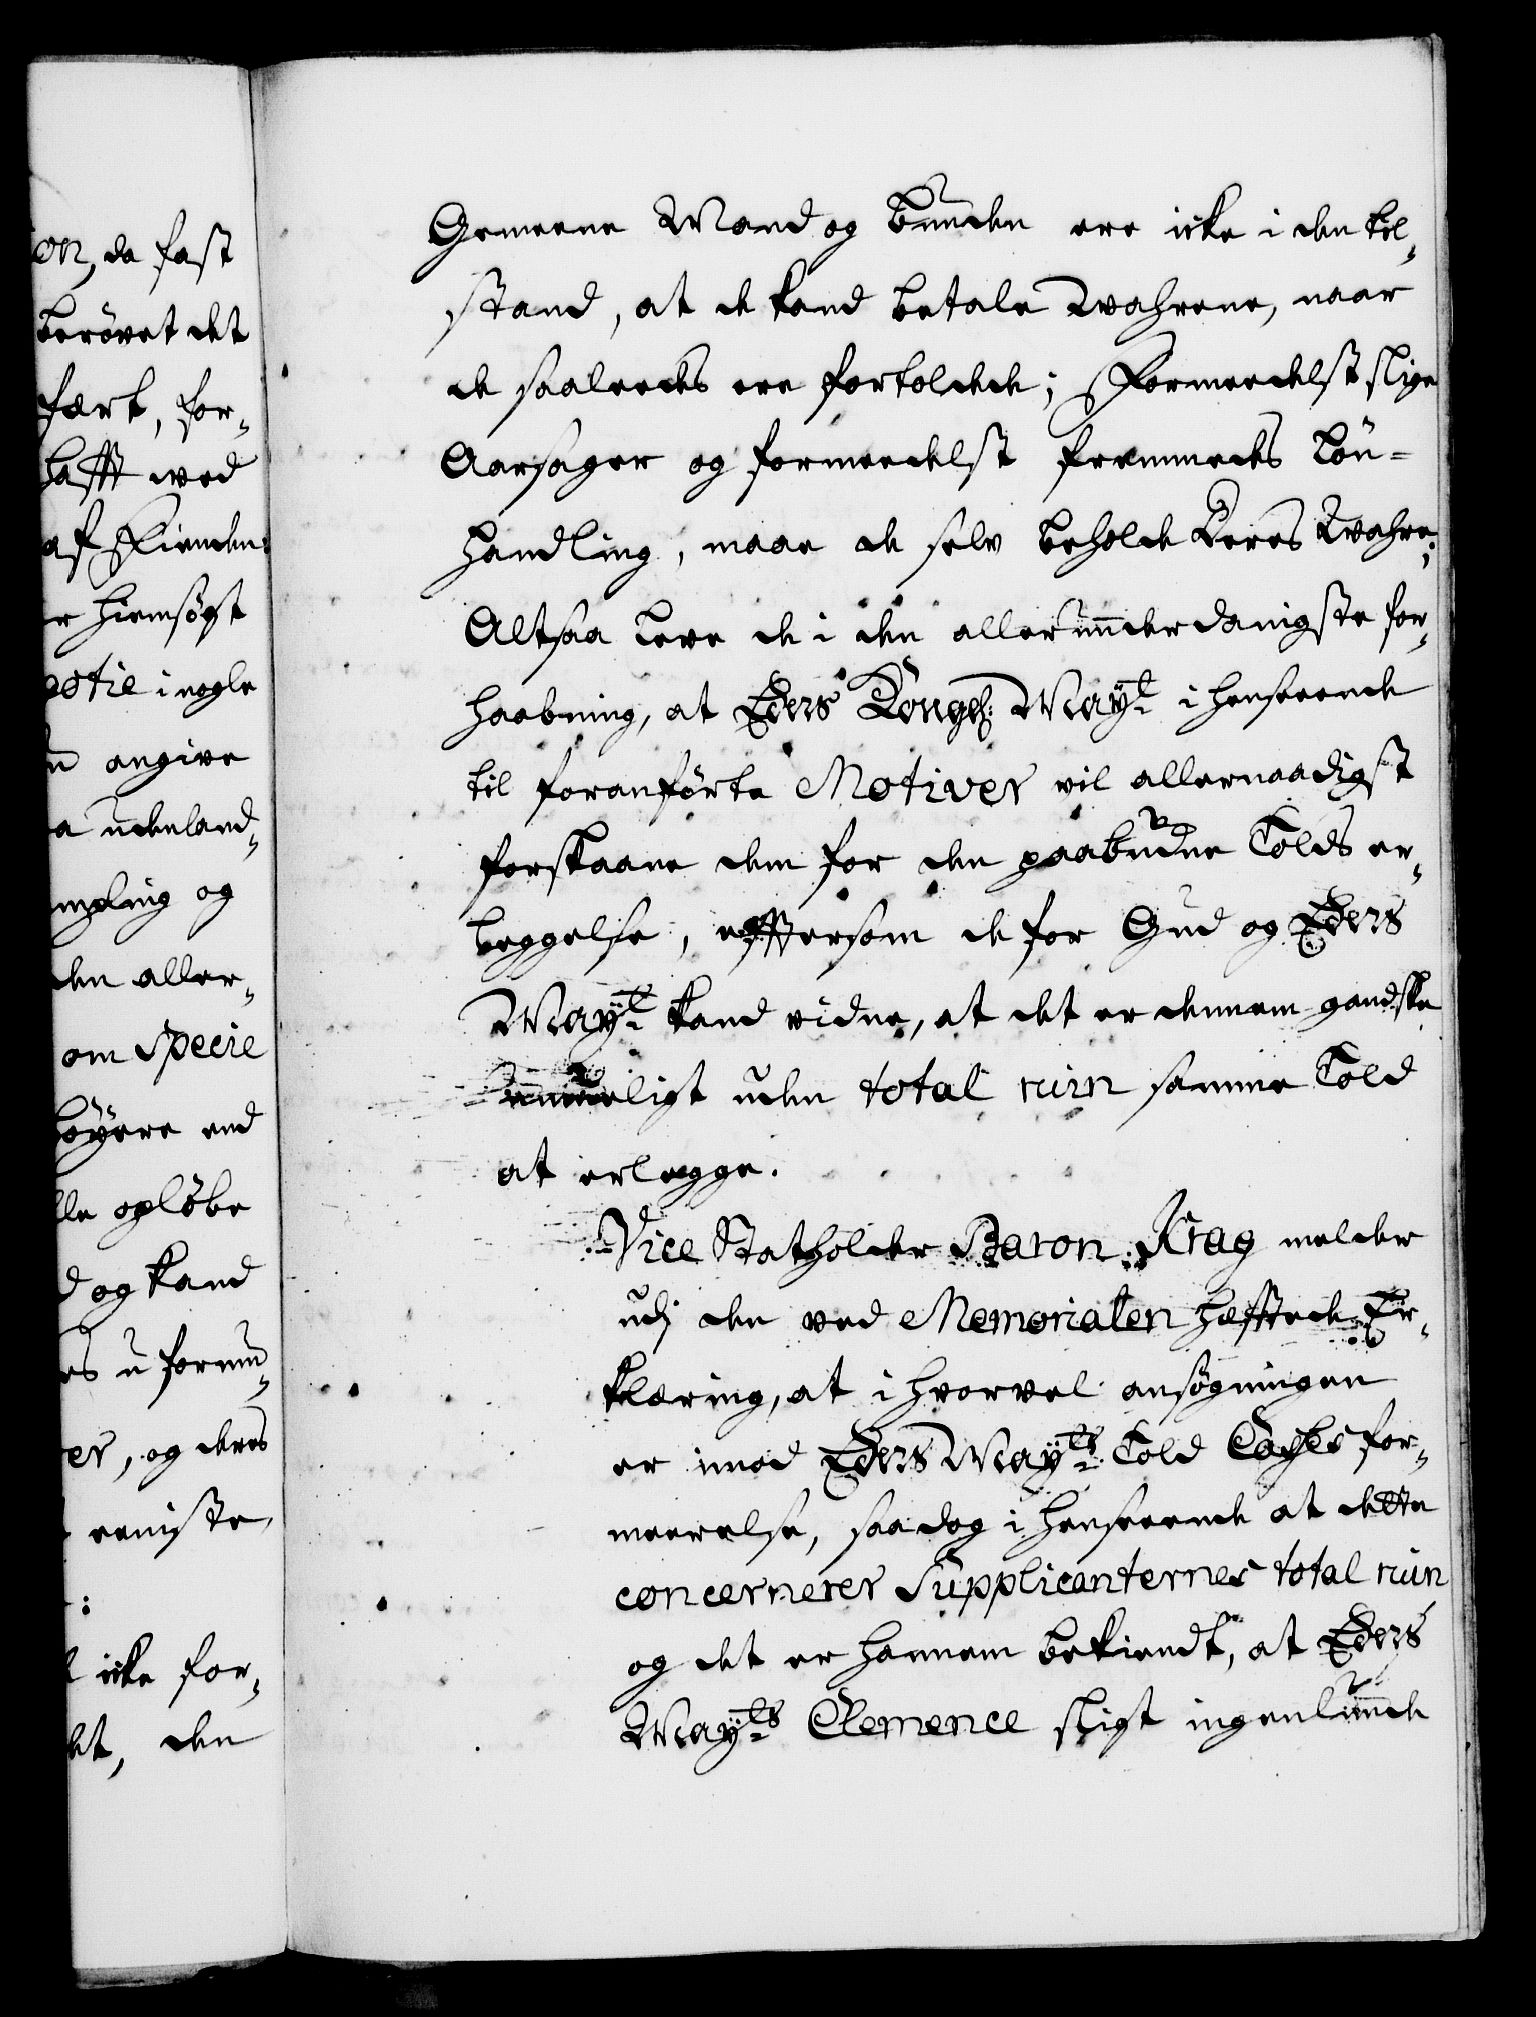 on, da fast
berövet det
fært, for-
hafft wed
af Fienden:
r hiemsögt
otie i nogle
n angive
a udenland-
mpling og
den aller-
om Specie
höyere end
lle oplöbe
d og kand
es u formu-
er, og deres
eeniste,
:
icke for-
et, den
Gemeene Mand og bunden ere icke i den til-
stand, at de kand betale Wahrene, naar
de saaleedes ere fortoldede; Formeedelst slige
Aarsager og formeedelst fremmedes Lön-
handling, maae de selv beholde Deres Wahre;
Altsaa leve de i den allerunderdanigste for-
haabning, at Eders Kongel: Mayt i henseende
til foranförte Motiver vil allernaadigst
forskaane dem for den paabudne Tolds er-
leggelse, efftersom de for Gud og Eders
Mayt kand vidne, at det er dennem gandske
umueligt uden total ruin samme Told
at erlægge.
Vice Statholder Baron Krag melder
udj den ved Memorialen hæfftede Er-
klæring, at ihvorvel ansögningen
er imod Eders Mayts Told Casses for-
meerelse, saa dog i henseende at dette
concernerer Supplicanternes total ruin
og det er hannem bekiendt, at Eders
Mayts Clemence sligt ingenlunde